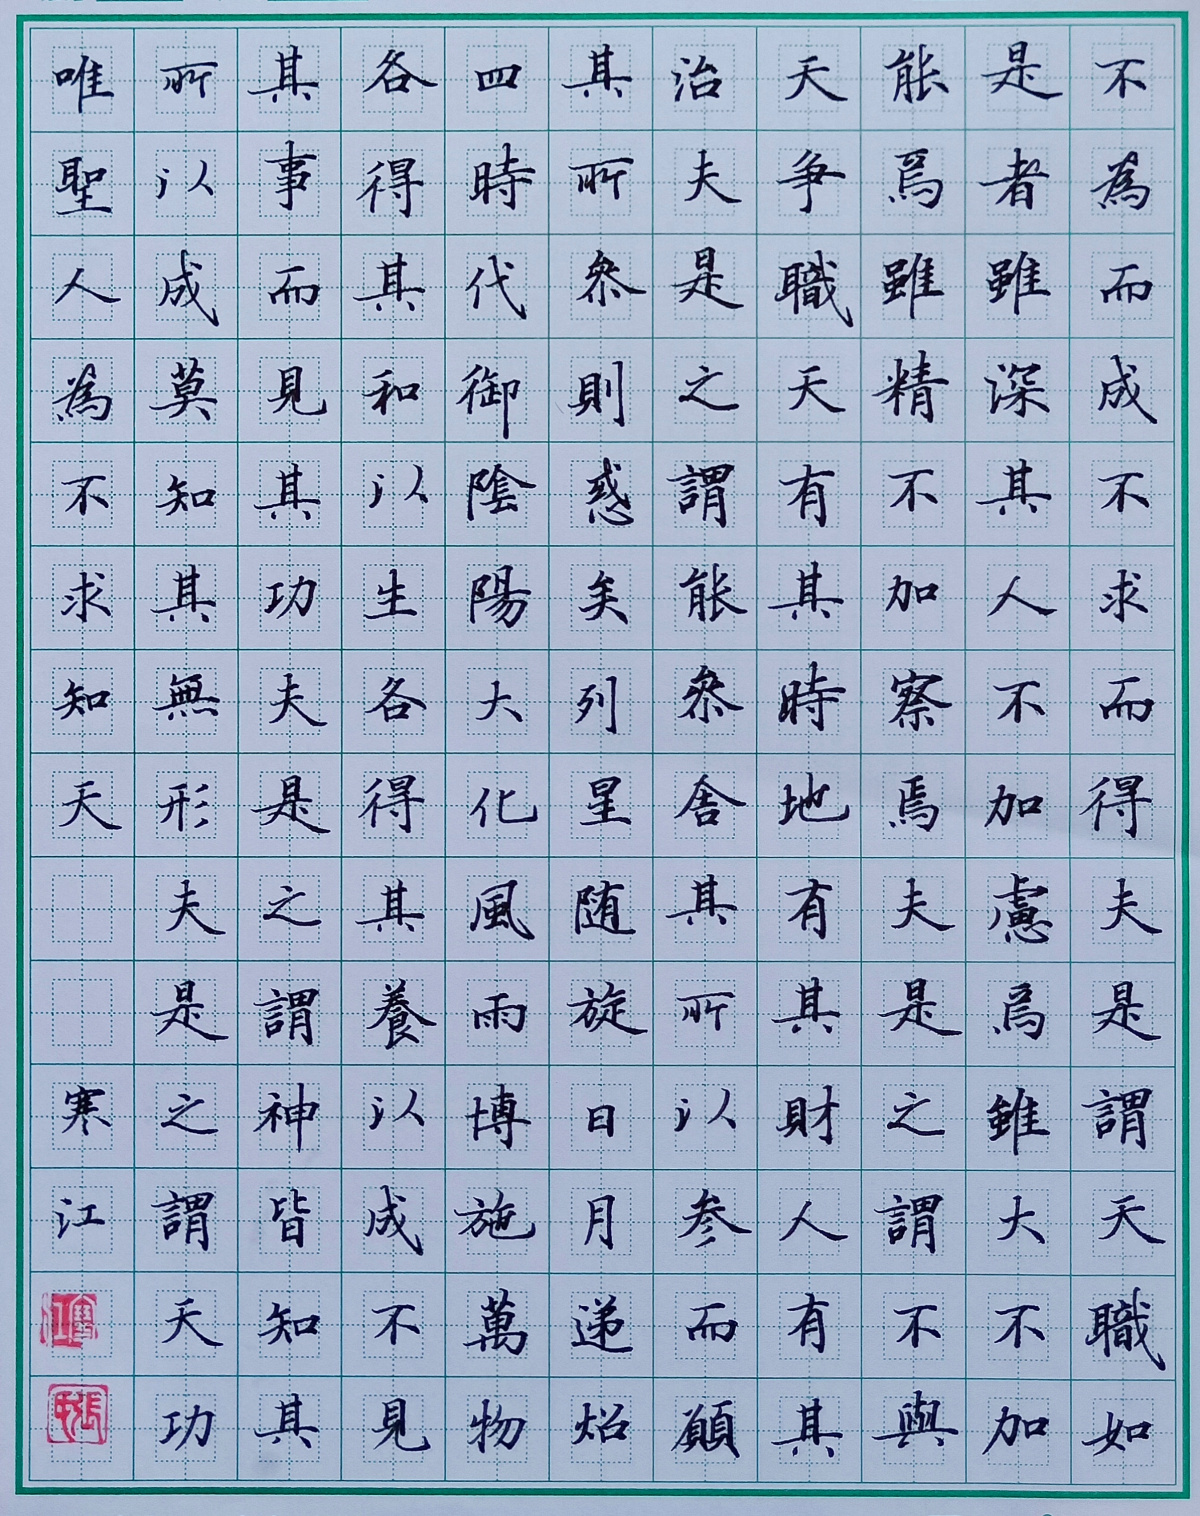 不為而成不求而得夫是謂天職如
是者雖深其人不加慮焉雖大不加
能焉雖精不加察焉夫是之謂不與
天爭職天有其時地有其財人有其
治夫是之謂能叅舍其所以参而願
其所叅則惑矣列星随旋日月递炤
四時代御陰陽大化風雨博施萬物
各得其和以生各得其養以成不見
其事而見其功夫是之謂神皆知其
所以成莫知其無形夫是之謂天功
唯聖人為不求知天
寒江